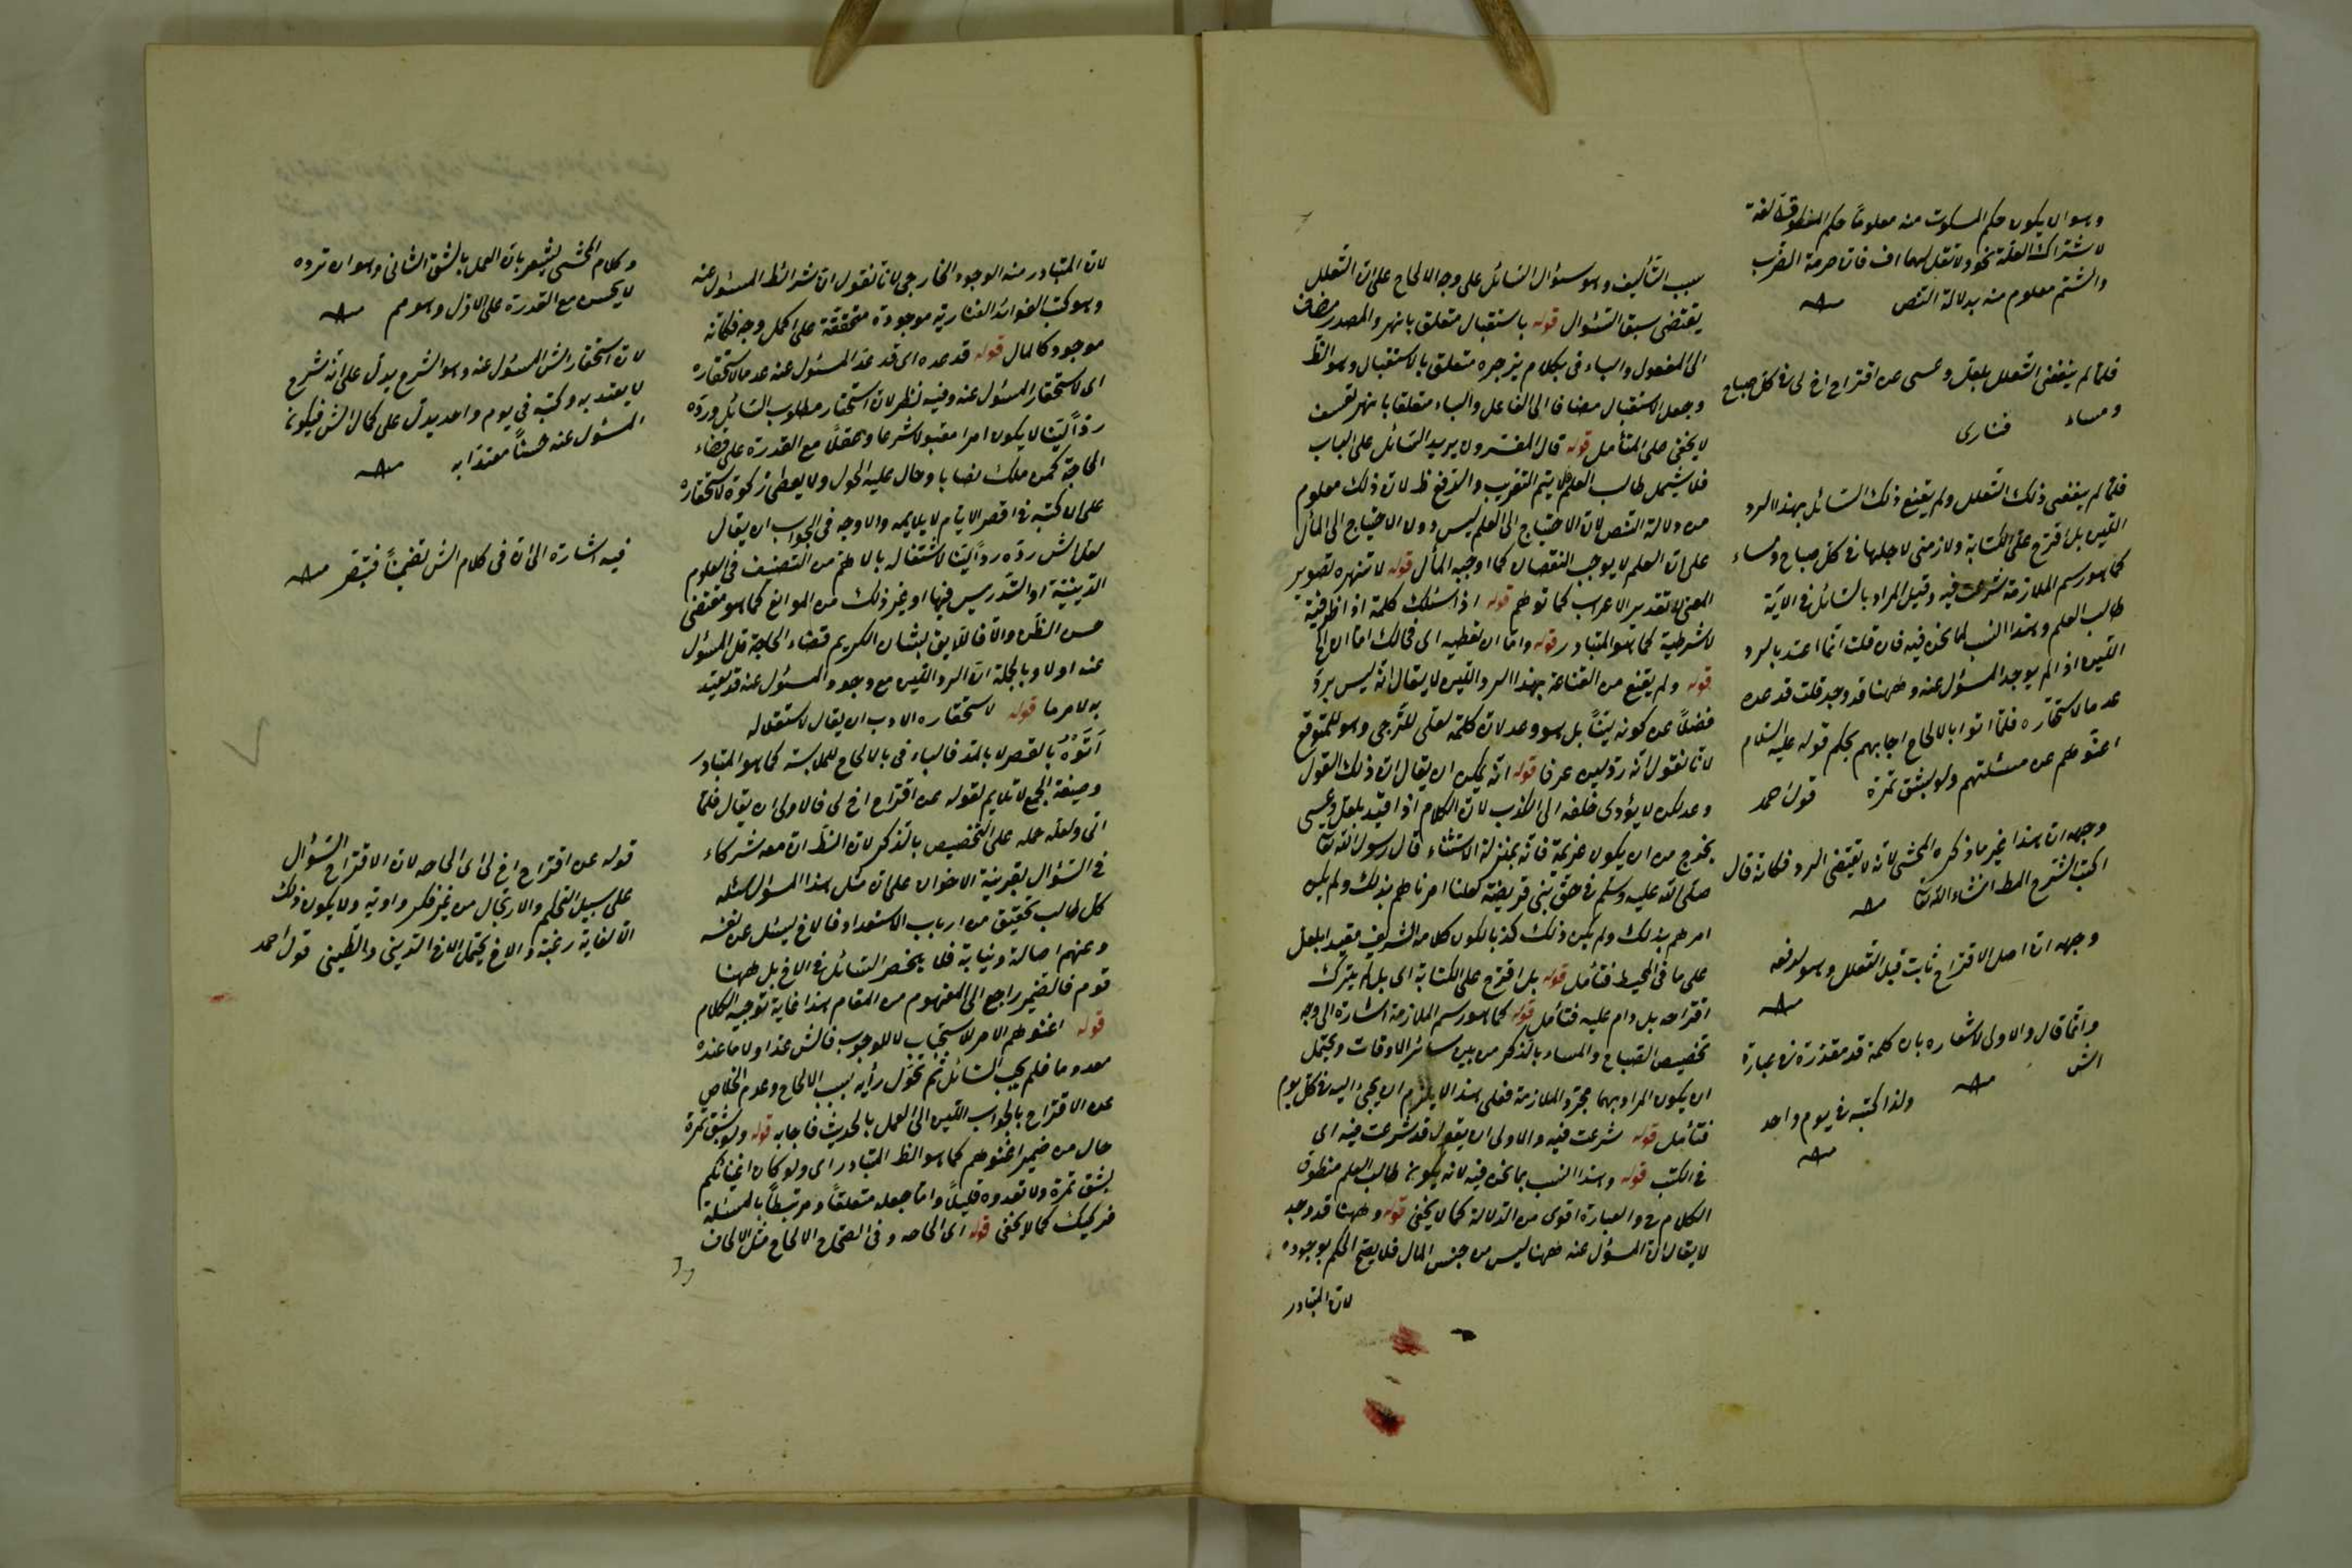 سبب التأليف وهو سؤال السائل على وجه الالحاح على ان التعلل
يقتضى سبق السؤال قوله باستقبال متعلق بانهر والمصدر مضاف
الى المفعول والباء فى بكلام يزجره متعلق بالاستقبال وهو الظ
وجعل الاستقبال مضافا الى الفاعل والباء متعلقا بانهر تعسف
لا يخفى على المتأمل قوله قال المفسرون يريد السائل على الباب
فلا يشمل طالب العلم فلا يتم التقريب والدفع ظ لان ذلك معلوم
من دلالة النص لان الاحتياج الى العلم ليس دون الاحتياج الى المال
على ان العلم لا يوجب النقصان كما اوجبه المال قوله لا تنهره تصوير
المعنى لا تقدير الاعراب كما توهم قوله اذا سئلك كلمة اذا ظرفية
لا شرطية كما هو المتبادر قوله واما ان تعطيه اى فى مالك اما
قوله ولم يقنع من القناعة بهذا الرد اللين لا يقال انه ليس برد
فضلا عن كونه لينا بل هو وعد لان كلمة لعلى للترجى وهو للمتوقع
لانا نقول انه رد لين عرفا قوله انه يمكن ان يقال ان ذلك القول
وعد لكن لا يؤدى خلفه الى الكذب لان الكلام اذا قيد بلعل وعسى
يخرج من ان يكون عزيمة فانه بمنزلة الاستثناء قال رسول الله تعا
صلى الله عليه وسلم فى حق بنى قريضة لعلنا امرناهم بذلك ولم يكن
امرهم بذلك ولم يكن ذلك كذبا لكون كلامه الشريف مقيدا بلعل
على ما فى المحيط فتأمل قوله بل اقترح على الكتابة اى بل لم يترك
اقتراحه بل دام عليه فتأمل قوله كما هو رسم الملازمة اشارة الى وجه
تخصيص الصباح والمساء بالذكر من بين سائر الاوقات ويحتمل
ان يكون المراد بهما مجرد الملازمة فعلى هذا لا يلزم ان يجئ اليه فى كل يوم
فتأمل قوله شرعت فيه والاولى ان يقول قد شرعت فيه اى
فى الكتب قوله وهذا انسب بما نحن فيه لانه يكون طالب العلم منطوق
الكلام ح والعبارة اقوى من الدلالة كما لا يخفى قوله وههنا قد وجد
لا يقال ان المسؤل عنه ههنا ليس من جنس المال فلا يصح الحكم بوجوده
لان المتبادر
وهو ان يكون حكم المسكوت منه معلوما حكم المنطوق لغة
لاشتراك العلة نحو ولا تقل لهما اف فان حرمة الضرب
والشتم معلوم منه بدلالة النص
فلما لم ينفعنى التعلل بلعل وعسى عن اقتراح اخ لى فى كل صباح
ومساء فنارى
فلما لم ينفعنى ذلك التعلل ولم يقنع ذلك السائل بهذا الرد
اللين بل اقترح على الكتابة ولازمنى لاجلها فى كل صباح ومساء
كما هو رسم الملازمة شرعت فيه وقيل المراد بالسائل فى الآية
طالب العلم وهذا انسب لما نحن فيه فان قلت انما اعتد بالرد
اللين اذا لم يوجد المسؤل عنه وههنا قد وجد قلت قد عده
عدما لاستحقاره فلما اتوا بالالحاح اجابهم بحكم قوله عليه السلام
اغنوهم عن مسئلتهم ولو بشق تمرة قول احمد
وجهه ان هذا غير ما ذكره المحشى لانه لا يقتضى الرد فكانه قال
اكتب الشرح المط انشاء الله تعا
وجهه ان اصل الاقتراح ثابت قبل التعلل وهو لدفعه
وانما قال والاولى لاشعاره بان كلمة قد مقدرة فى عبارة
الش
ولذا كتبه فى يوم واحد
لان المتبادر منه الوجود الخارجى لانا نقول ان شرائط المسئول عنه
وهو كتب الفوائد الفنارية موجودة متحققة على اكمل وجه فكانه
موجود كالمال قوله قد عده اى قد عد المسئول عنه عدما لاستحقاره
اى لاستحقار المسئول عنه وفيه نظر لان استحقار مطلوب السائل ورده
ردا لينا لا يكون امرا مقبولا شرعا وعقلا مع القدرة على قضاء
الحاجة كمن ملك نصابا وحال عليه الحول ولا يعطى زكوة لاستحقاره
على ان كتبه فى اقصر الايام لا يلايمه والاوجه فى الجواب ان يقال
لعل الش رده ردا لينا لاشتغاله بالاهم من التصنيف فى العلوم
الدينية او التدريس فيها او غير ذلك من الموانع كما هو مقتضى
حسن الظن والا فاللايق بشان الكريم قضاء الحاجة قل المسؤل
عنه اولا وبالجملة ان الرد اللين مع وجود المسئول عنه قد يعتد
به لامر ما قوله لاستحقاره الادب ان يقال لاستقلاله
اتوه بالقصر لا بالمد فالباء فى بالالحاح للملابسة كما هو المتبادر
وصيغة الجمع لا تلايم لقوله عن اقتراح اخ لى فالاولى ان يقال فلما
اتى ولعله حمله على التخصيص بالذكر لان الظ ان معه شركاء
فى السؤال بقرينة الاخوان على ان مثل هذا المسؤل يسئله
كل طالب تحقيق من ارباب الاستعداد فالاخ ليسئل عن نفسه
وعنهم اصالة ونيابة فلا ينحصر السائل فى الاخ بل ههنا
قوم فالضمير راجع الى المفهوم من المقام هذا غاية توجيه الكلام
قوله اغنوهم الامر للاستحباب لا للوجوب فالش عد اولا ما عنده
معدوما فلم يجب السائل ثم تحول رأيه بسبب الالحاح وعدم الخلاص
عن الاقتراح بالجواب اللين الى العمل بالحديث فاجابه قوله ولو بشق تمرة
حال من ضمير اغنوهم كما هو الظ المتبادر اى ولو كان اغنائكم
بشق تمرة ولا تعدوه قليلا واما جعله متعلقا ومرتبطا بالمسئلة
فركيك كما لا يخفى قوله اى الحاحه وفى الصحاح الالحاح مثل الالحاف
وكلام المحشى يشعر بان العمل بالشق الثانى وهو ان ترده
لا يحسن مع القدرة على الاول وهو مم
لان استحقار الش المسئول عنه وهو الشرح يدل على انه شرح
لا يعتد به وكتبه فى يوم واحد يدل على كمال الش فيكون
المسئول عنه حسنا معتدا به
فيه اشارة الى ان فى كلام الش تضمينا فتبصر
قوله عن اقتراح اخ لى اى الحاحه لان الاقتراح السؤال
على سبيل التحكم والارتجال من غير فكر وروية ولا يكون ذلك
الا لغاية رغبة والاخ يحتمل الاخ الدينى والطينى قول احمد